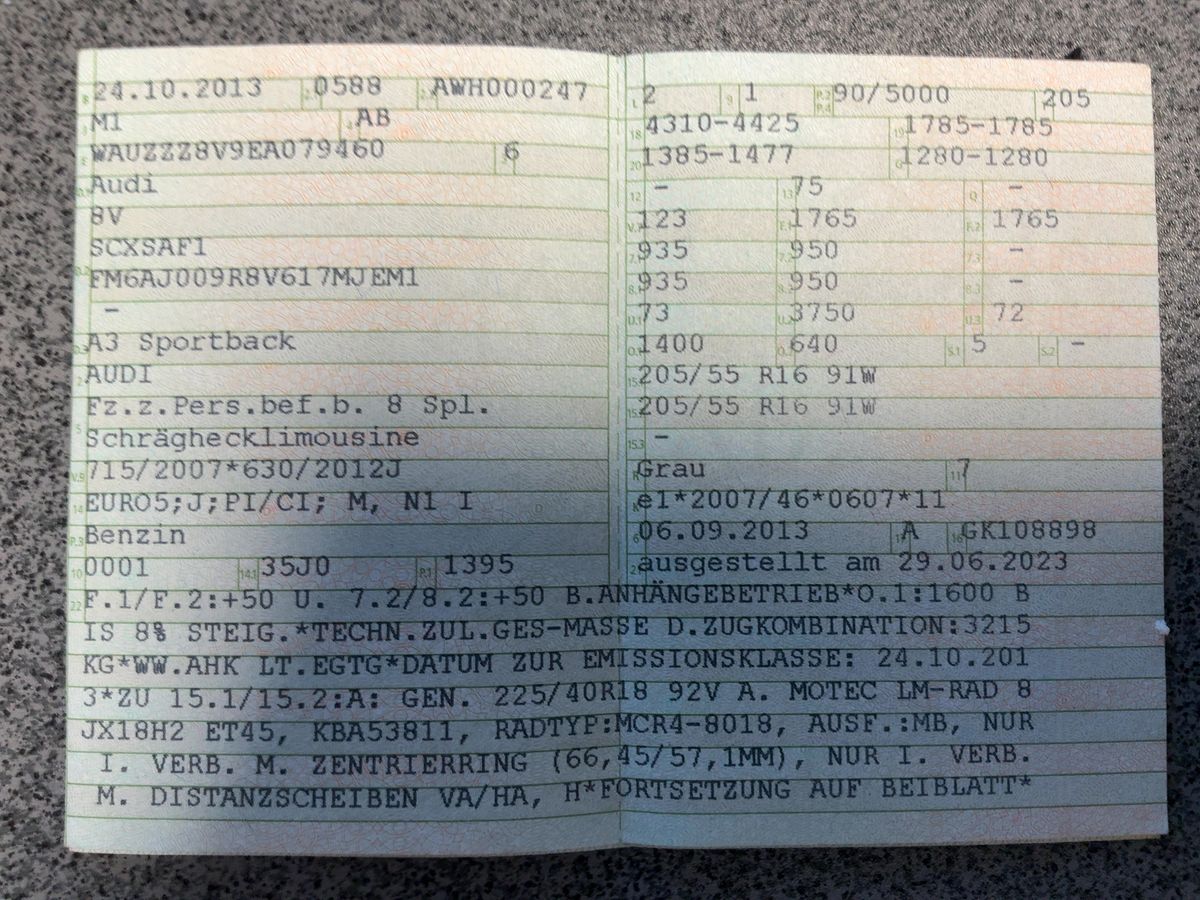 24.10.2013 0588 AWH000247
M1 AB
WAUZZZ8V9EA079460 6
Audi
8V
SCXSAF1
FM6AJ009R8V617MJEM1
–
A3 Sportback
AUDI
Fz.z.Pers.bef.b. 8 Spl.
Schräghecklimousine
715/2007*630/2012J
EURO5;J;PI/CI; M, N1 I
Benzin
10 0001 14.1 35J0 P.1 1395
L 2 9 1 90/5000 205
18 4310-4425 19 1785-1785
20 1385-1477 G 1280-1280
12 – 13 75 Q –
123 1765 F.2 1765
935 950 7.3 –
935 950 8.3 –
U.1 73 U.2 3750 U.3 72
O.1 1400 640 S.1 5 S.2 –
205/55 R16 91W
205/55 R16 91W
15.3 –
R Grau 11 7
K e1*2007/46*0607*11
6 06.09.2013 17 A 16 GK108898
ausgestellt am 29.06.2023
22 F.1/F.2:+50 U. 7.2/8.2:+50 B.ANHÄNGEBETRIEB*O.1:1600 B
IS 8% STEIG.*TECHN.ZUL.GES-MASSE D.ZUGKOMBINATION:3215
KG*WW.AHK LT.EGTG*DATUM ZUR EMISSIONSKLASSE: 24.10.201
3*ZU 15.1/15.2:A: GEN. 225/40R18 92V A. MOTEC LM-RAD 8
JX18H2 ET45, KBA53811, RADTYP:MCR4-8018, AUSF.:MB, NUR
I. VERB. M. ZENTRIERRING (66,45/57,1MM), NUR I. VERB.
M. DISTANZSCHEIBEN VA/HA, H*FORTSETZUNG AUF BEIBLATT*